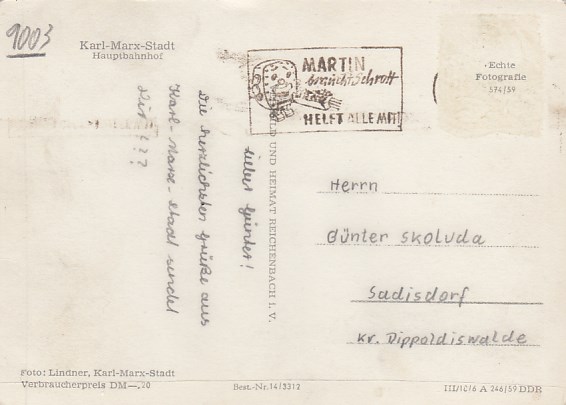 9003
Karl-Marx-Stadt
Hauptbahnhof
MARTIN
braucht Schrott
HELFT ALLE MIT!
Echte
Fotografie
574/59
Lieber Günter!
Die herzlichsten Grüße aus
Karl-Marx-Stadt sendet
Dir ???
BILD UND HEIMAT REICHENBACH I. V.
Herrn
Günter Skoluda
Sadisdorf
Kr. Dippoldiswalde
Foto: Lindner, Karl-Marx-Stadt
Verbraucherpreis DM —.20
Best.-Nr. 14/3312
III/1076 A 246/59 DDR